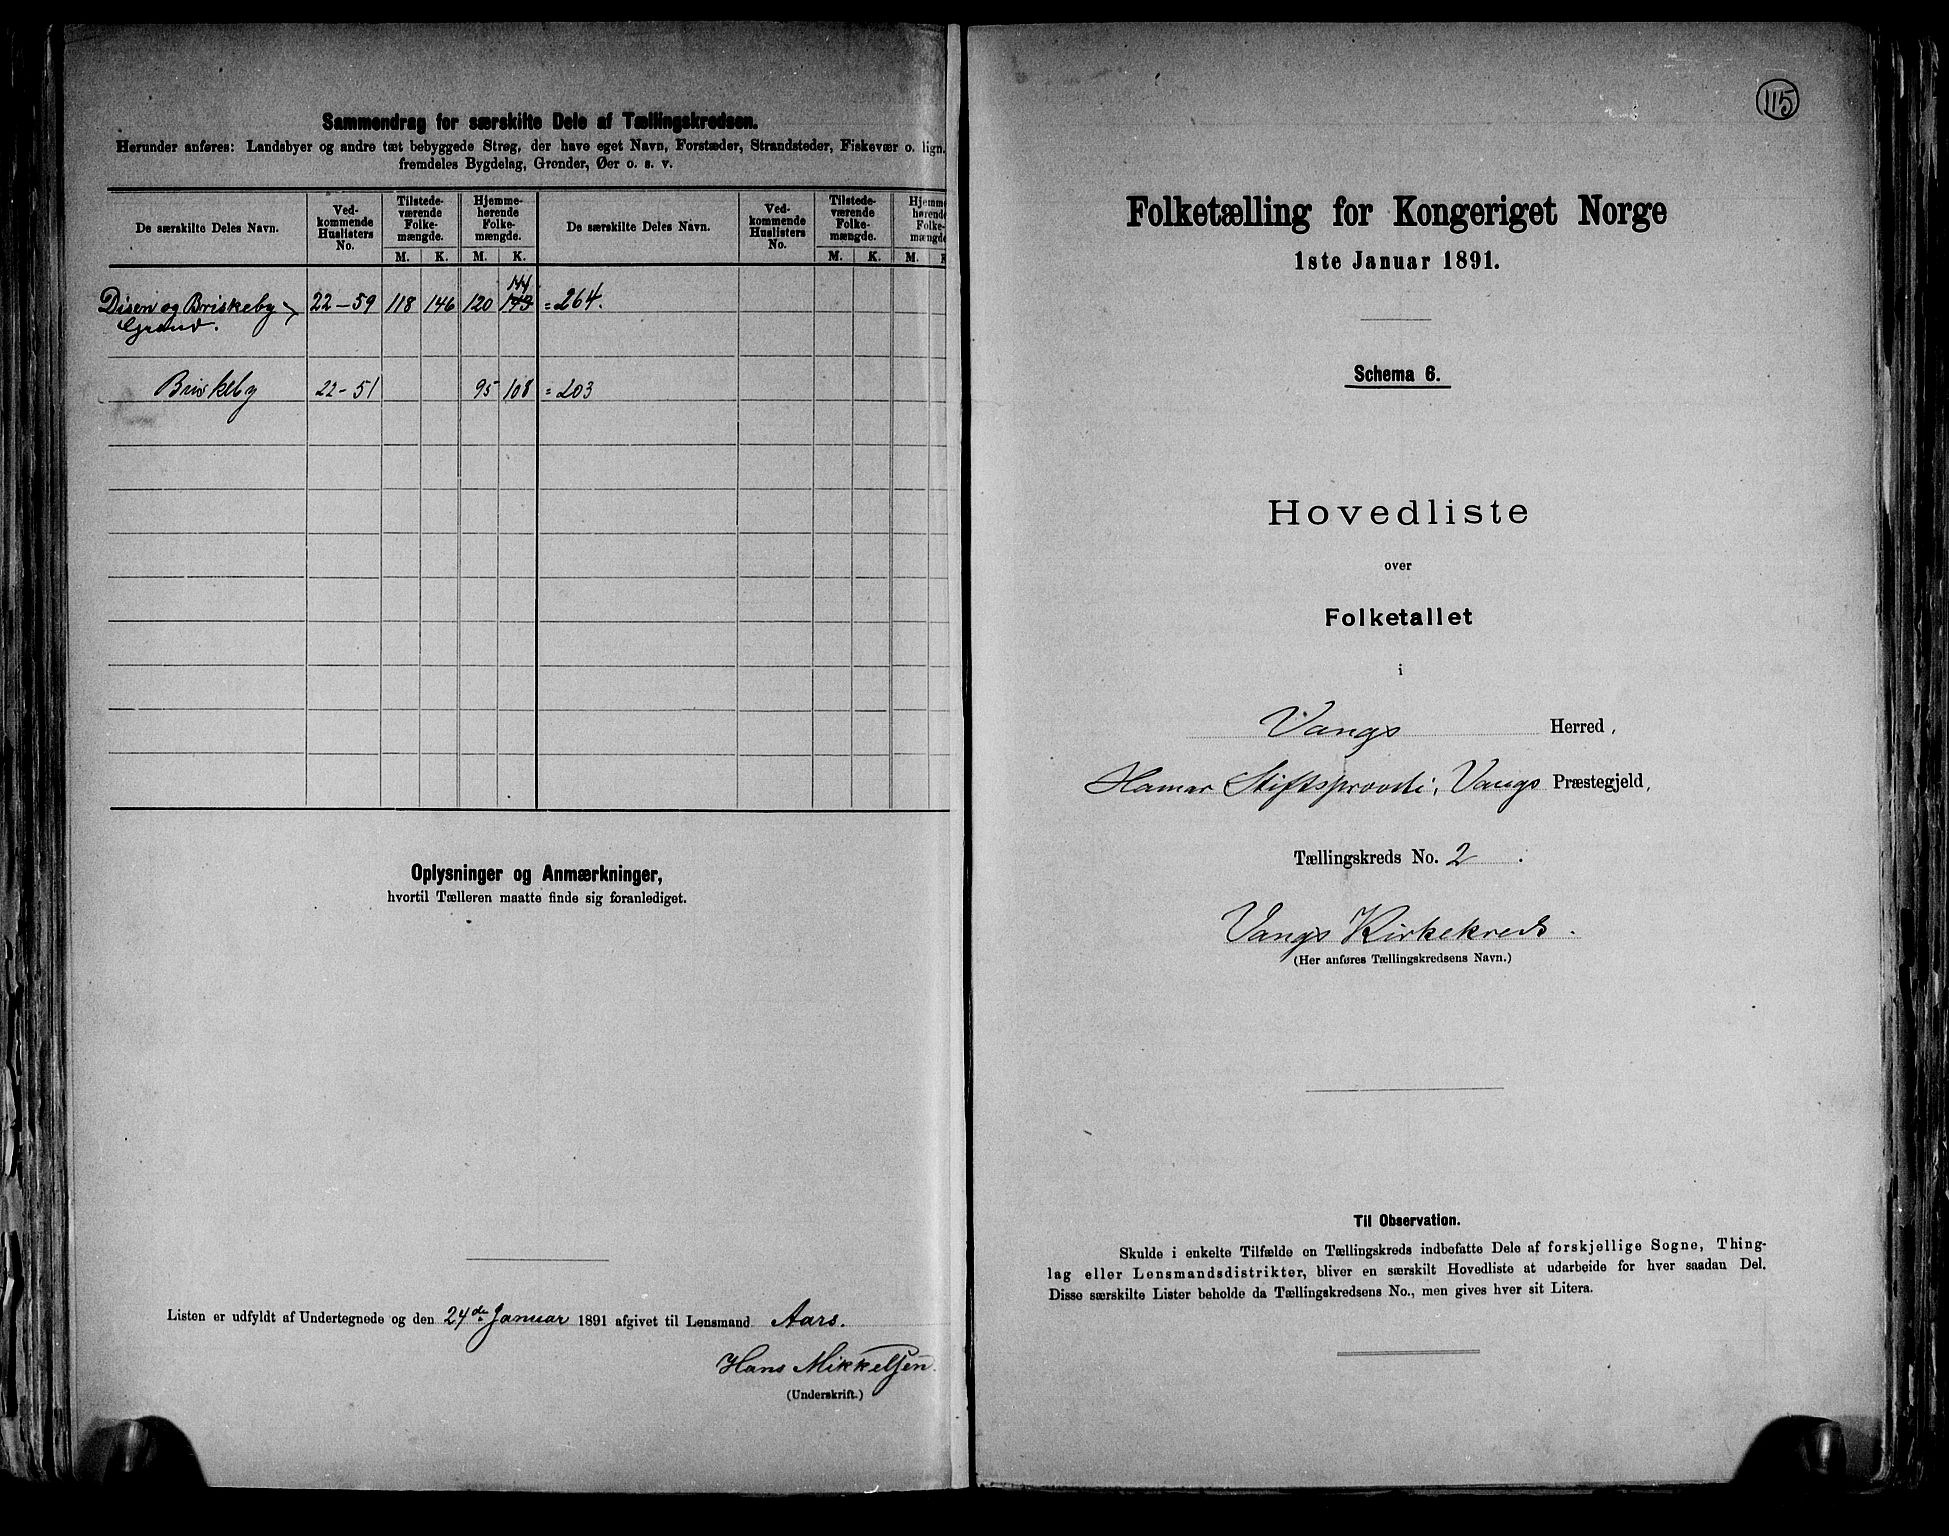 Sammendrag for særskilte Dele af Tællingskredsen.
Herunder anføres: Landsbyer og andre tæt bebyggede Strøg, der have eget Navn, Forstæder, Strandsteder, Fiskevær o. lign.
fremdeles Bygdelag, Grender, Øer o. s. v.
De særskilte Deles Navn. Ved-kommende Huslisters No. Tilstede-værende Folke-mængde. Hjemme-hørende Folke-mængde. De særskilte Deles Navn. Ved-kommende Huslisters No. Tilstede-værende Folke-mængde. Hjemme-hørende Folke-mængde
M. K. M. K. M. K. M. K
144
Disen og Briskeby 22-59 118 146 120 143 = 264.
Grend.
Briskeby 22-51 95 108 = 203
Oplysninger og Anmærkninger,
hvortil Tælleren maatte finde sig foranlediget.
Listen er udfyldt af Undertegnede og den 24de Januar 1891 afgivet til Lensmand Aars.
Hans Mikkelsen.
(Underskrift.)
115
Folketælling for Kongeriget Norge
1ste Januar 1891.
Schema 6.
Hovedliste
over
Folketallet
i
Vangs Herred,
Hamar Stiftsprovsti, Vangs Præstegjeld,
Tællingskreds No. 2.
Vangs Kirkekreds.
(Her anføres Tællingskredsens Navn.)
Til Observation.
Skulde i enkelte Tilfælde en Tællingskreds indbefatte Dele af forskjellige Sogne, Thing-
lag eller Lensmandsdistrikter, bliver en særskilt Hovedliste at udarbeide for hver saadan Del.
Disse særskilte Lister beholde da Tællingskredsens No., men gives hver sit Litera.